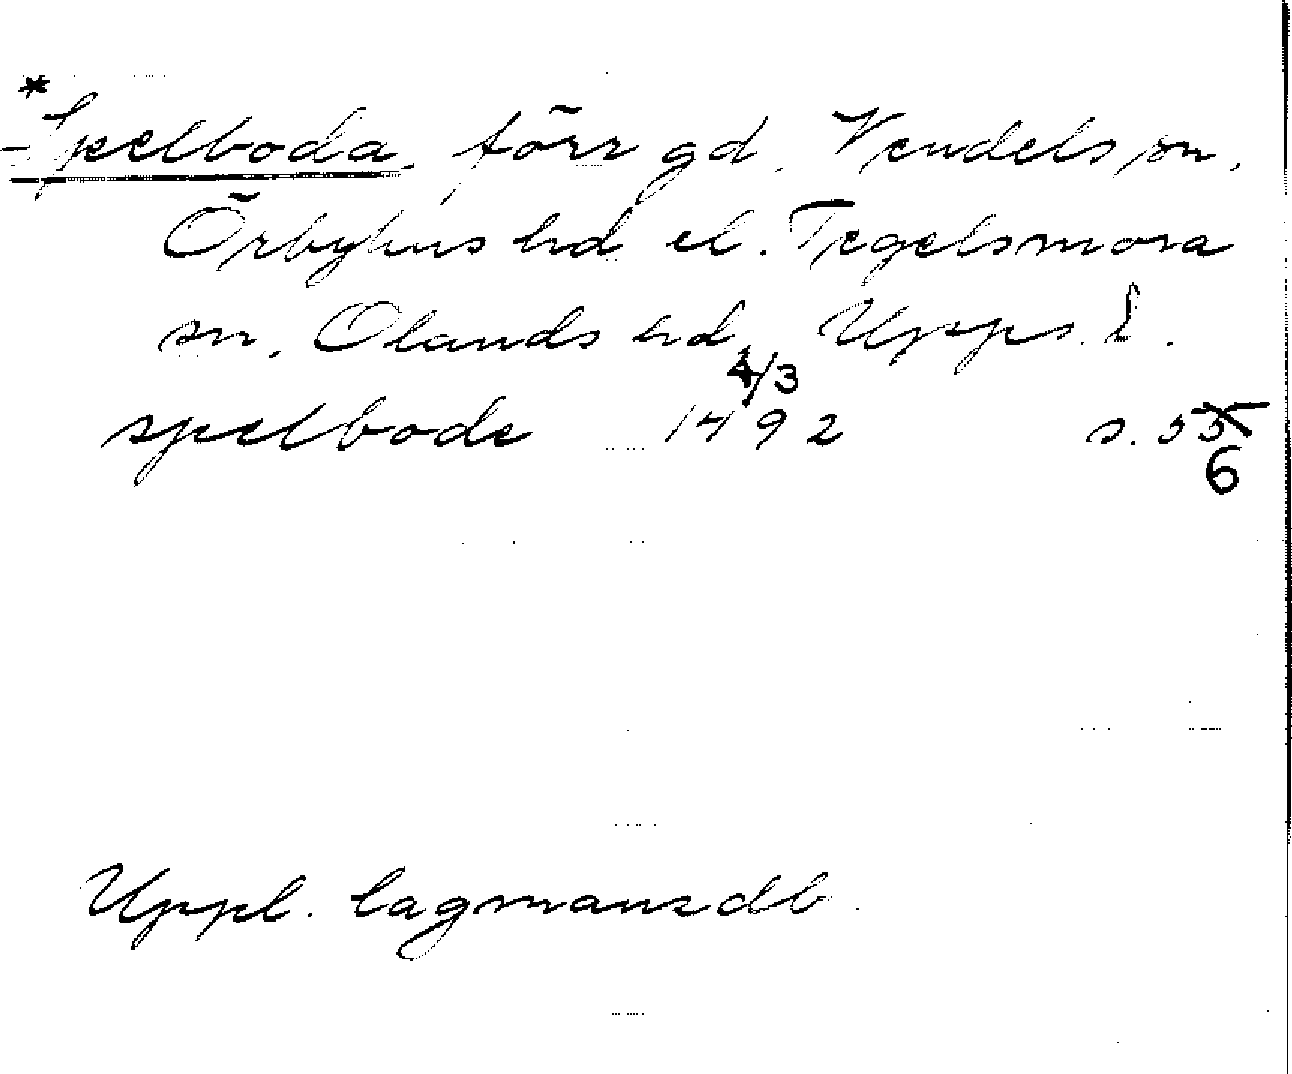 *Spelboda, förr gd, Vendels sn,
Örbyhus hd el. Tegelsmora
sn, Olands hd, Upps. l.
4/3
spelbode 1492 s. 55
6
Uppl. lagmansdb.